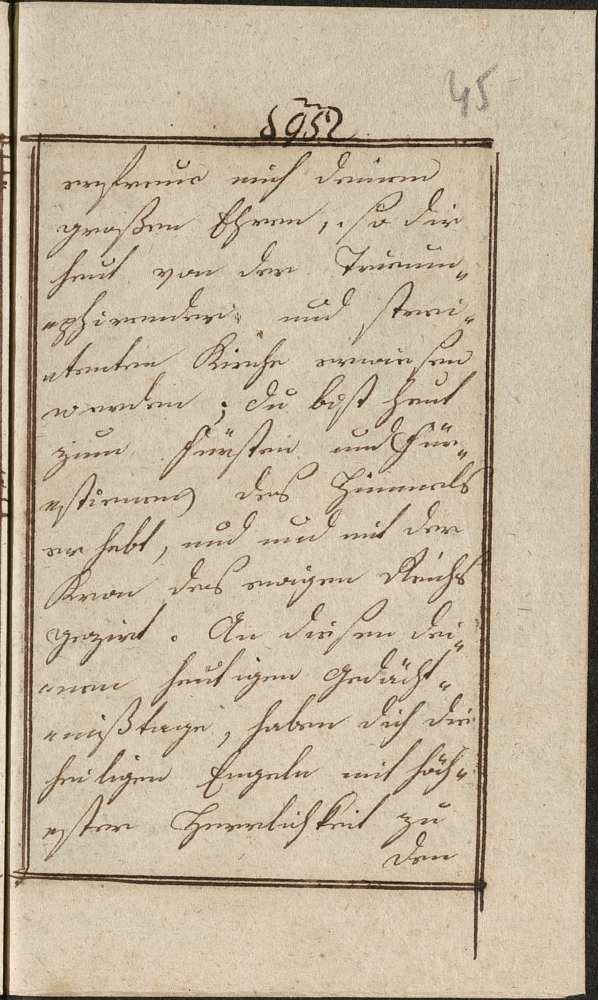 45
895
erfreue mich deinen
großen Ehren, so dir
heut von der Trium„
„phirender und strei„
„tenten Kirche erwiesen
werden; du bist heut
zum Fürsten und Für„
„stienen des Himmels
er hebt, und und mit der
Kron des ewigen Reichs
gezirt. An diesen dei„
„nen heutigen Gedächt„
„nißtage, haben dich die
heiligen Engeln mit höch„
„ster Herrlichkeit zu
den